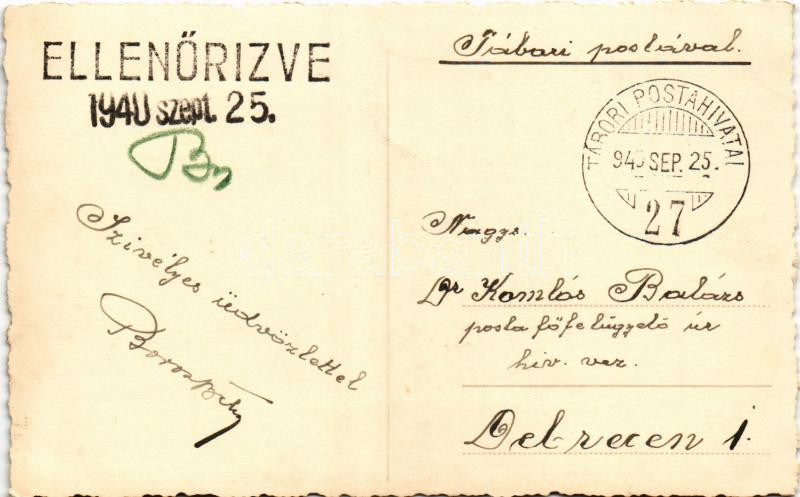 ELLENŐRIZVE
1940 szept. 25.
Szivélyes üdvözlettel
Tábori postával.
TÁBORI POSTAHIVATAL
940 SEP. 25.
27
Nagys.
Dr Komlós Balázs
posta főfelügyelő úr
hiv. vez.
Debrecen 1.
darabanth